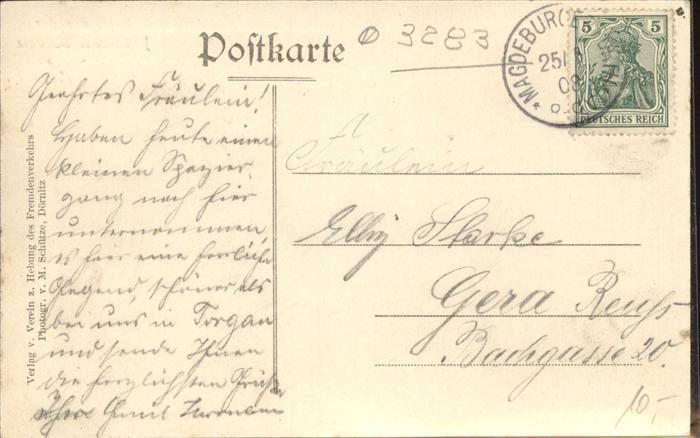 Postkarte
3283
MAGDEBURG
25
08
5 5
DEUTSCHES REICH
Geehrtes Fräulein!
Haben heute einen
kleinen Spazier-
gang nach hier
unternommen,
es hier eine herrliche
Gegend, schöner als
bei uns in Torgau
und sende Ihnen
die herzlichsten Grüße
Ihr Emil
Fräulein
Elly Starke
Gera Reuß
Bachgasse 20.
10,-
Verlag v. Verein z. Hebung des Fremdenverkehrs
Photogr. v. M. Schütze, Dörnitz